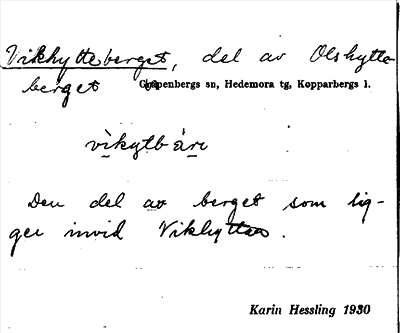 Vikhytteberget, del av Olshytte-
berget Garpenbergs sn, Hedemora tg, Kopparbergs l.
vìkytbàri
Den del av berget som lig-
ger invid Vikhyttan.
Karin Hessling 1930